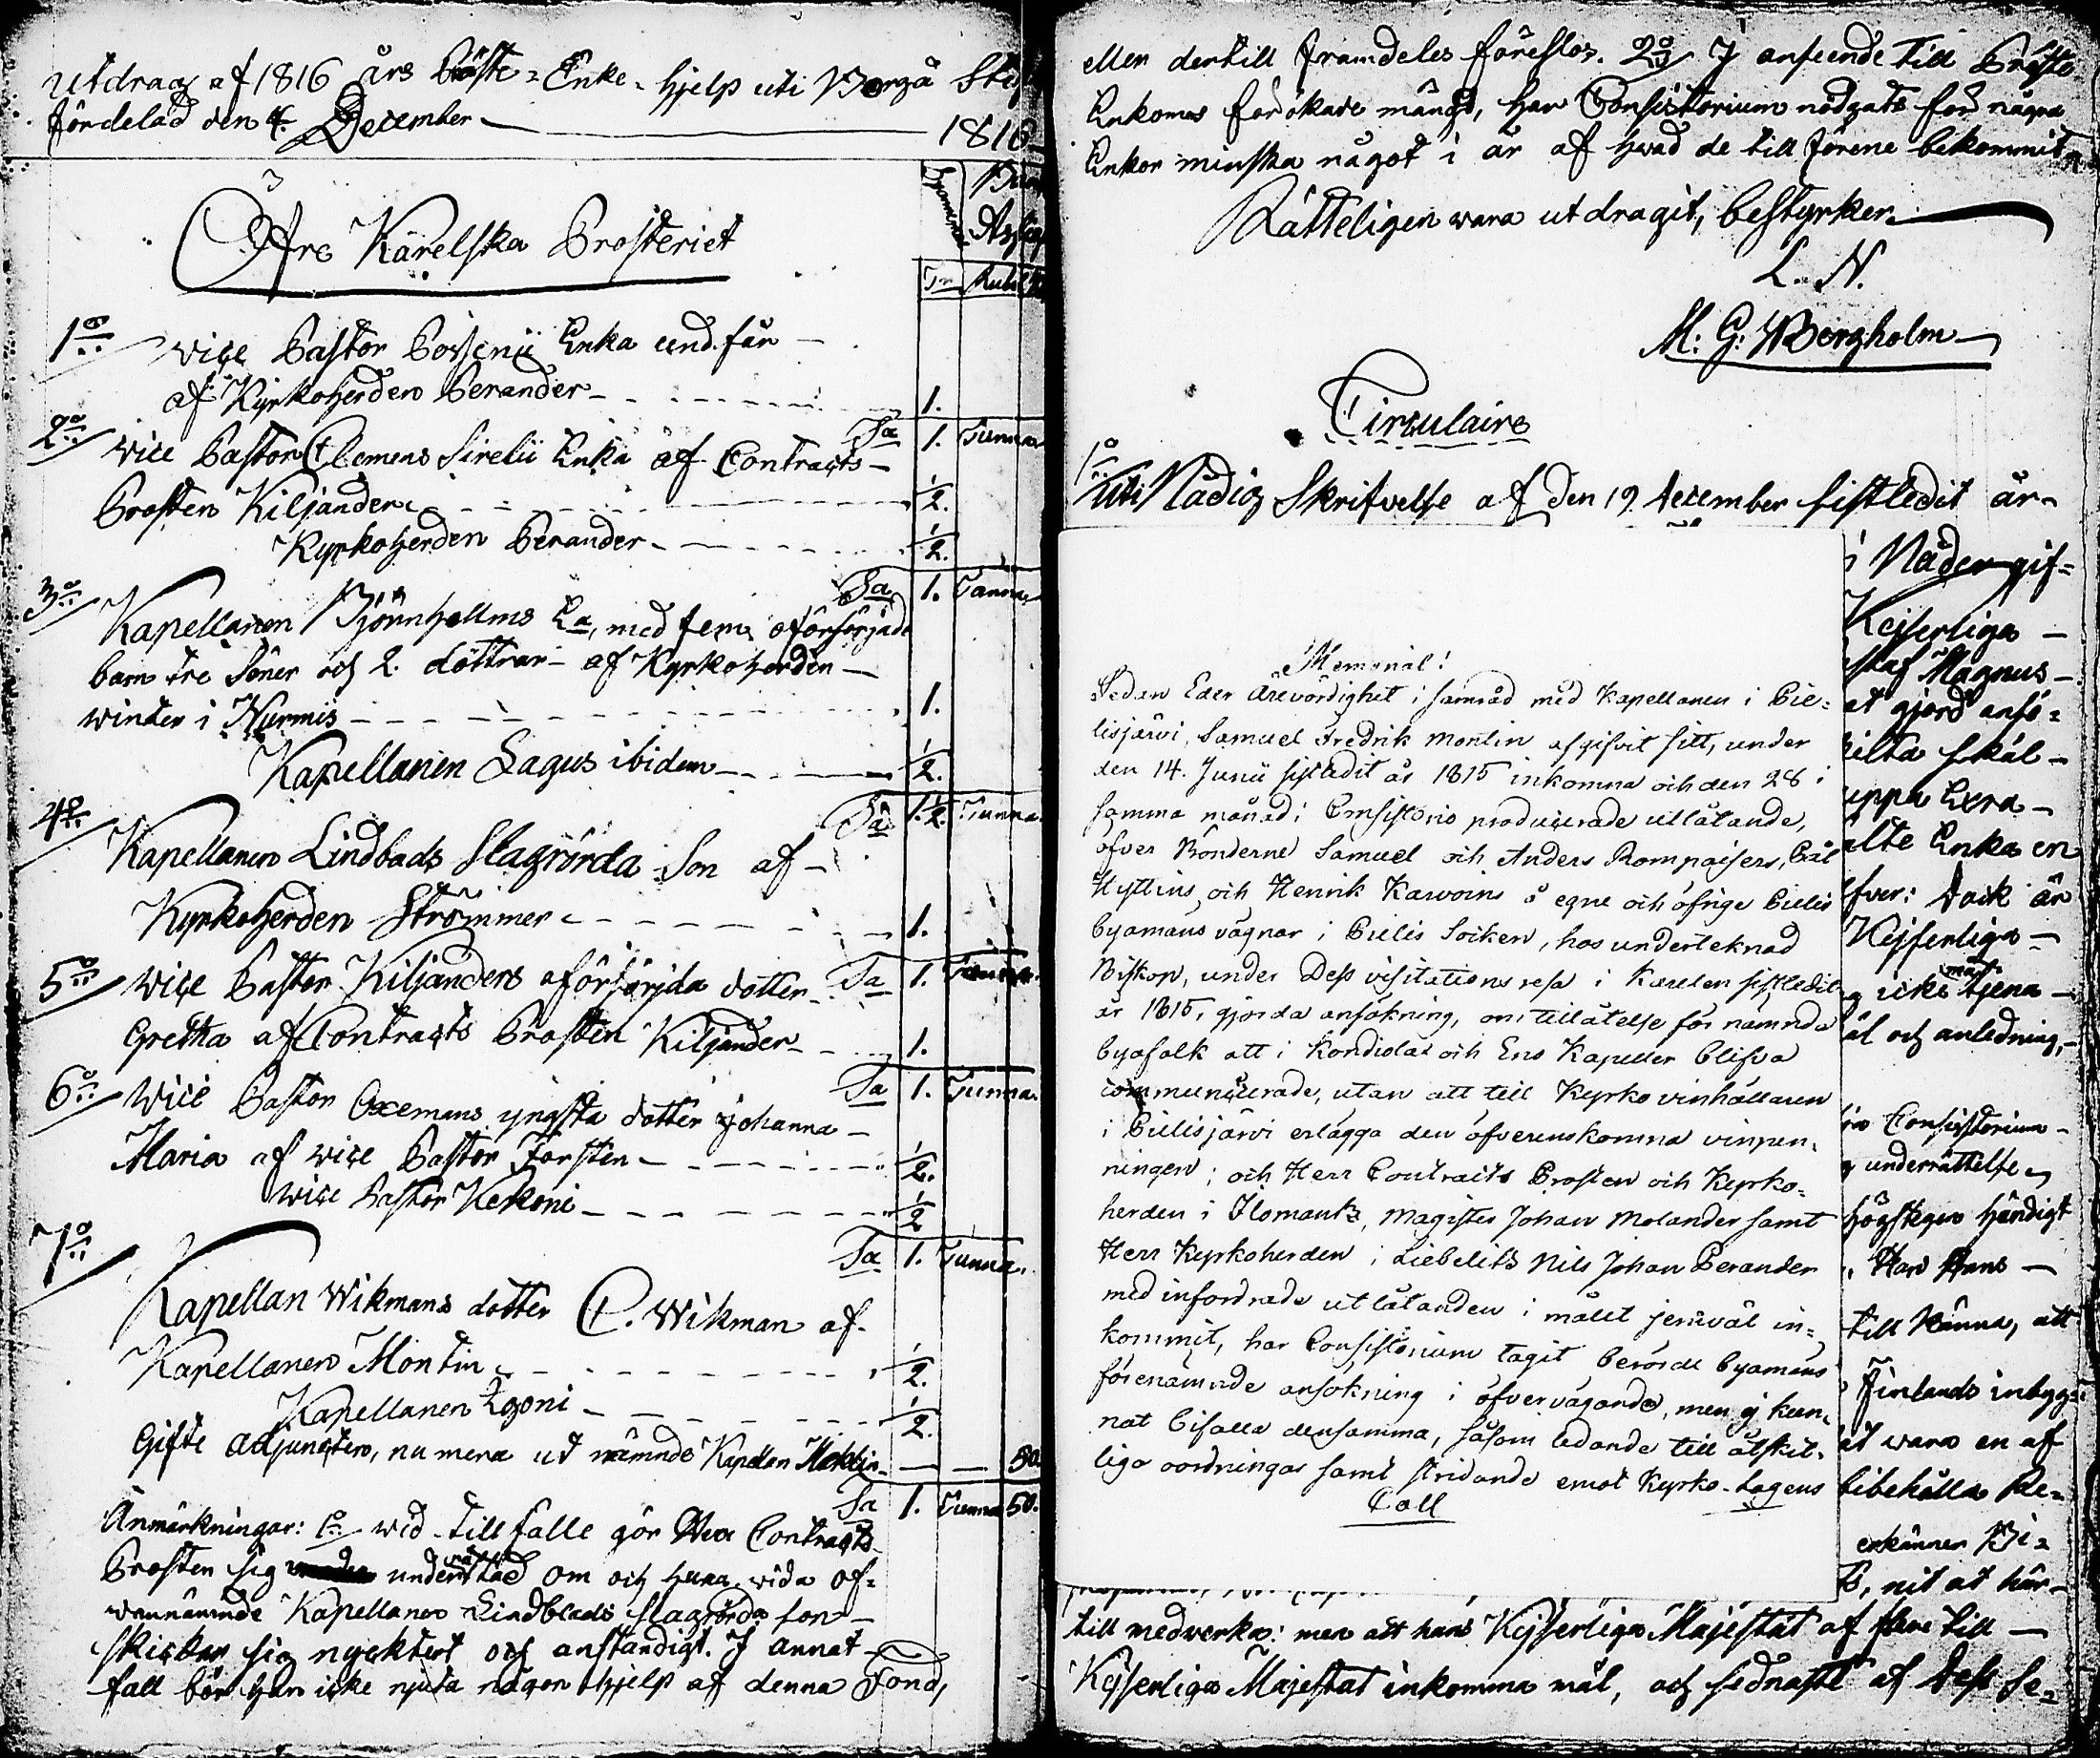 Utdrag af 1816 års Präste-Enke-hjelp uti Borgå Stif
fördelad den 4. December 1816
Öfre Karelska Prosteriet
Tr Rub
1o vice Pastor Enka und.får
af Kyrkoherden Perander 1.
Sa 1. Tunna
2o vice Pastor Clemens Sirelii Enka af Contracts-
Prosten Kiljander 1/2.
Kyrkoherden Perander 1/2.
Sa 1. Tunna
3o Kapellanen Björnhellms Ea, med fem oförsörjade
barn tre Söner och 2. döttrar af Kyrkoherden
Winter i Nurmis 1.
Kapellanen Lagus ibidem 1/2.
Sa 1.1/2. Tunna
4o Kapellanen Lindbads Slagrörda Son af
Kyrkoherden Strömmer 1.
Sa 1. Tunna
5o vice Pastor Kiljanders oförsörjda dotter
Gretha af Contracts Prosten Kiljander 1.
Sa 1. Tunna.
6o vice Pastor Oxemans yngsta dotter Johanna
Maria af vice Pastor Forsten 1/2.
vice Pastor Kekoni 1/2
Sa 1. Tunna.
7o Kapellan Wikmans dotter C. Wikman af
Kapellanen Montin 1/2.
Kapellanen Egoni 1/2.
Gifte Adjuncten, numera ut nämnde Kapellan 50.
Sa 1. Tunna 50.
Anmärkningar: 1o wid tillfälle gör Herr Contracts
Prosten sig underrättad om och huru vida of-
vannämnde Kapellanen Lindblads slagrörda son
skickar sig nycktert och anständigt. I annat
fall bör han icke njuta någon hjelp af denna Fond,
eller dertill framdeles föreslås. 2o I anseende till Präste
Enkornas förökade mängd, har Consistorium nödgats för några
Enkor minska något i år af hvad de till förene bekommit.
Rätteligen vara utdragit, bestyrker
L. N.
M: G: Borgholm
Circulaire
1o Uti Nådig Skrifvelse af den 19 december sistledit år
i Nåder gif-
Kejserliga
staf Magnus
at gjord ansö-
skäl
uppå Exra
Enka en
fver: dock är
Kejserliga
icke må tjena
äl och anledning,
Consistorium
underrättelse
högstegen händigt
Har Hans
till känna, att
Finlands inbyg-
at vara en af
bibehålla Re-
erkänner Bi-
nit at här
Memorial!
Sedan Eder ärevördighet i samråd med Kapellanen i Pie-
lisjärvi, Samuel Fredrik Montin afgifvit sitt, under
den 14. Junii sistledit år 1815 inkomna och den 28 i
samma månad i Consistorio producerade utlåtande,
öfver Bönderne Samuel och Anders Rompaisers, Pål
Hyttins, och Henrik Karvoins å egne och öfrige Pielis
byamäns vägnar i Pielis Socken, hos underteknad
Biskop, under Dess visitations resa i Karelen sistledit
år 1815, gjorda ansökning, om tillåtelse för nämnda
byafolk att i Kondiolax och Eno Kapeller blifva
communicerade, utan att till Kyrko vinhållaren
i Pielisjärvi erlägga den öfverenskomna vinpen-
ningen; och Herr Contracts Prosten och Kyrko-
herden i Ilomants, Magister Johan Molander samt
Herr Kyrkoherden i Liebelits Nils Johan Perander
med infordrade utlåtanden i målet jemväl in-
kommit, har Consistorium tagit berörde byamäns
förenämnde ansökning i öfvervägande, men ej kun-
nat bifalla densamma, såsom ledande till åtskil-
liga oordningar samt stridande emot Kyrko-Lagens
Coll
till medverka: men att hans Kejserliga Majestät af flere till
Kejserliga Majestät inkomma mål, och sednast af Dess Se-